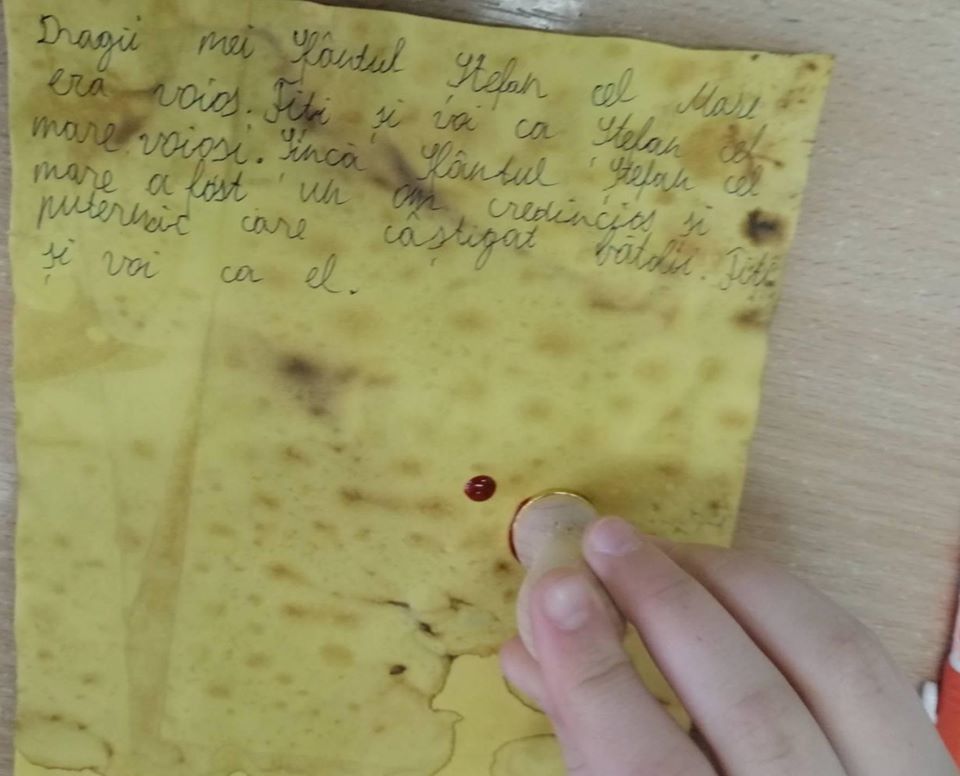 Dragii mei Sfântul Ștefan cel Mare
era voios. Fiți și voi ca Ștefan cel
mare voioși. Șincă Sfântul Ștefan cel
mare a fost un om credincios și
puternic care câștigat bătălii. Fiți
și voi ca el.